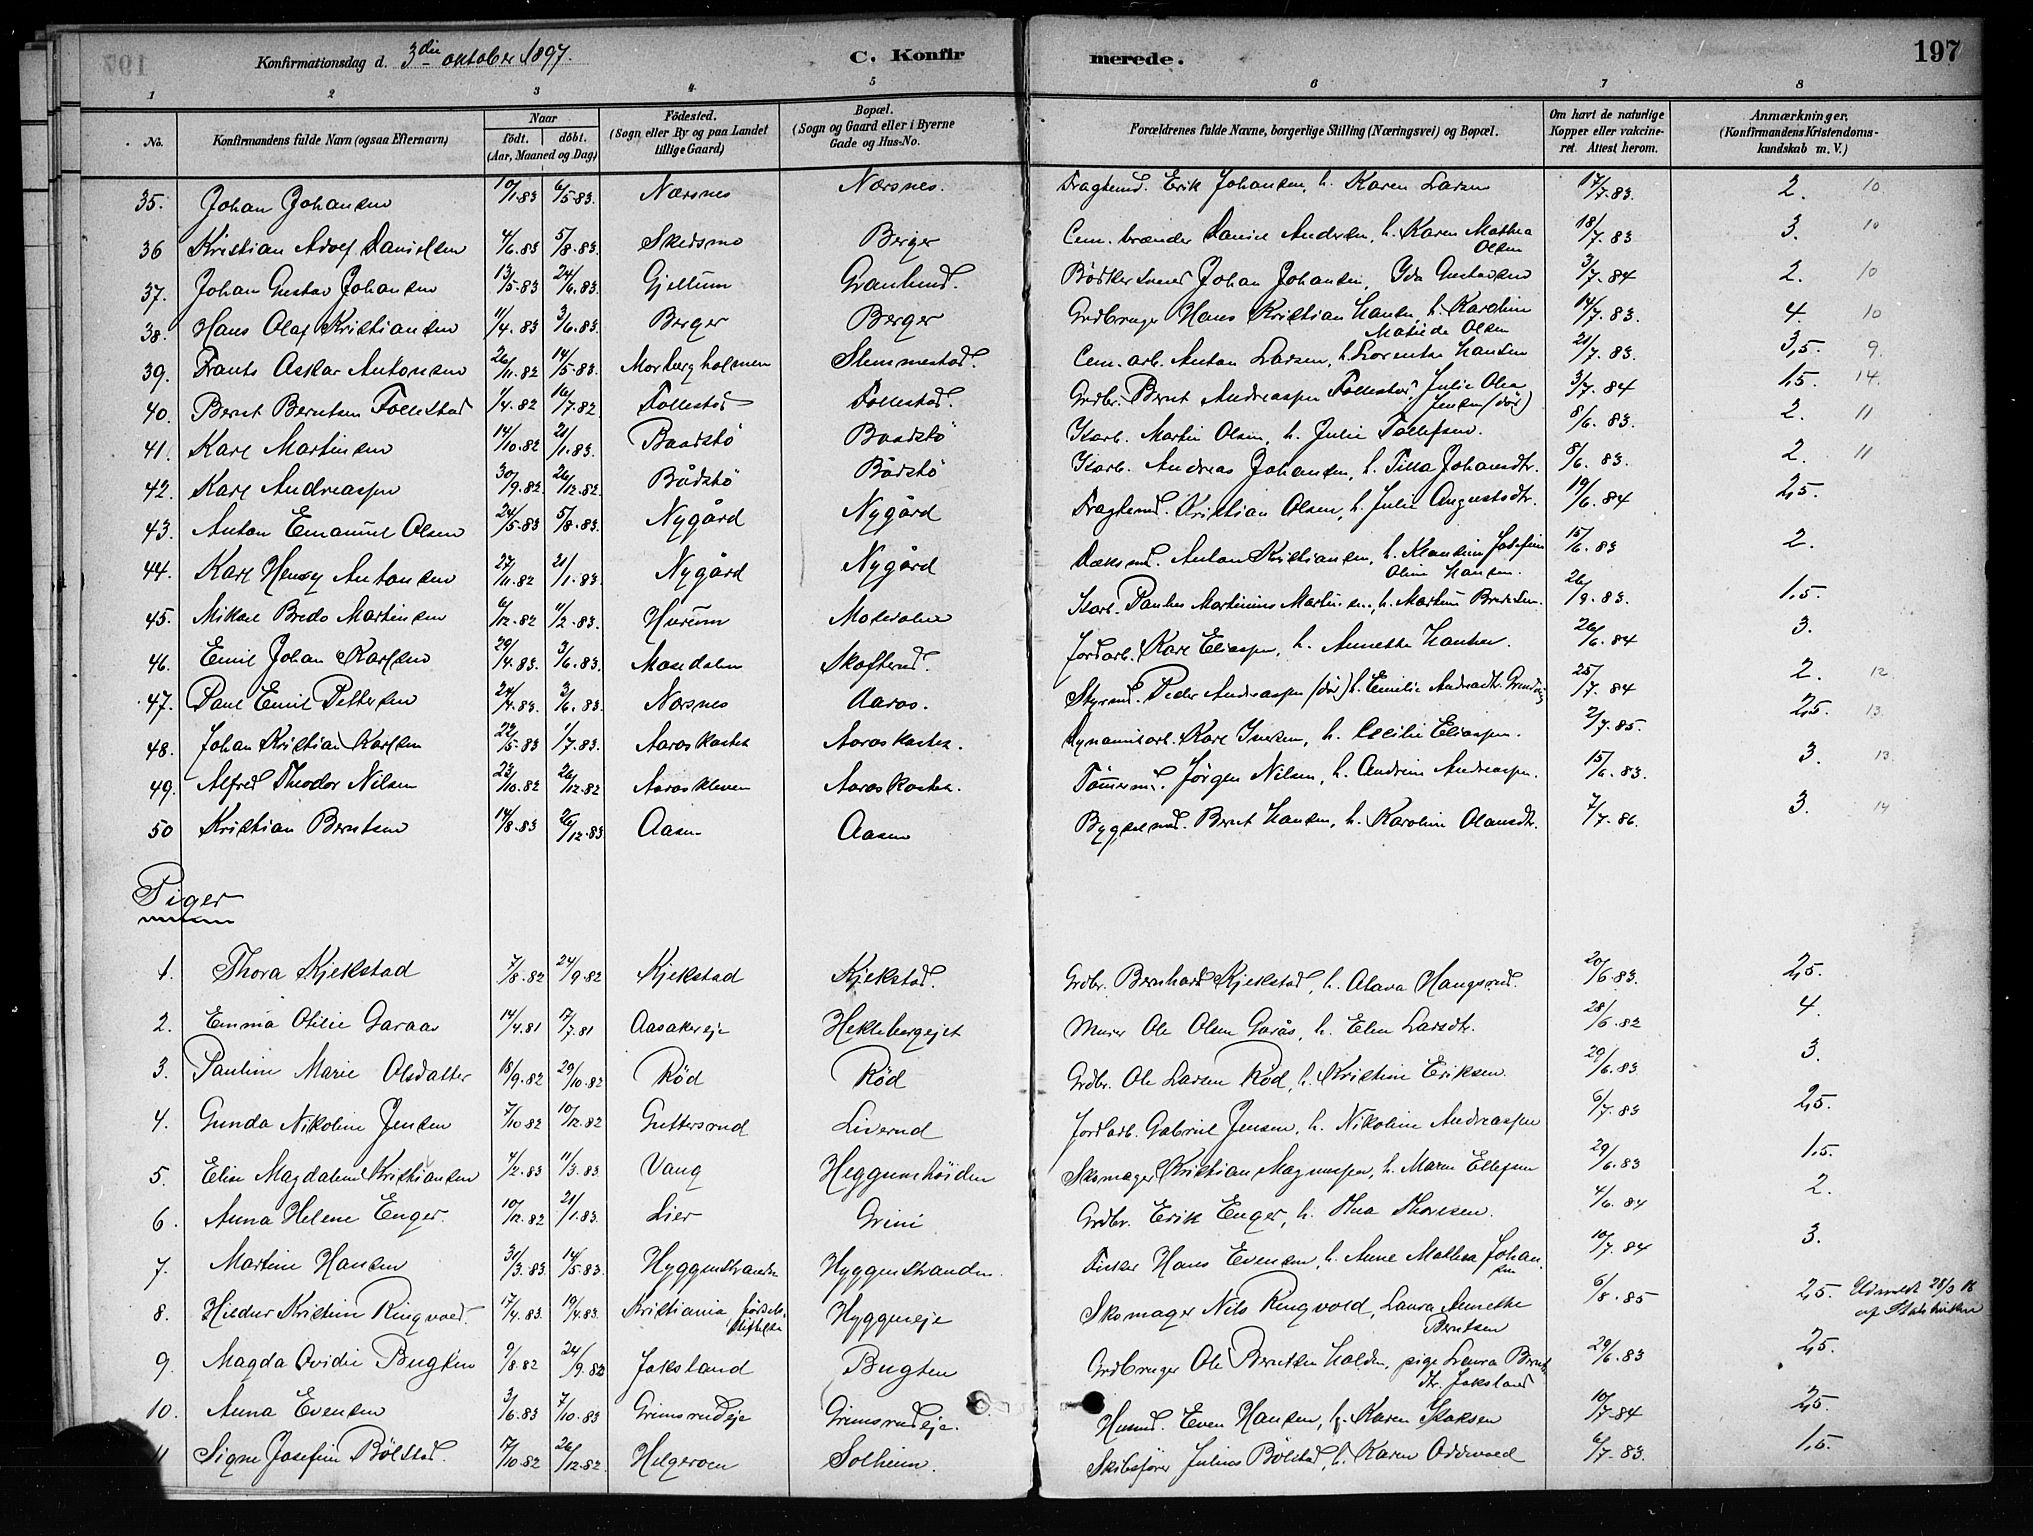 Konfirmationsdag d. 3die oktober 1897. C. Konfirmerede. 197
1 2 3 4 5 6 7 8
No. Konfirmandens fulde Navn (ogsaa Efternavn) Naar født. døbt. (Aar, Maaned og Dag) Fødested. (Sogn eller By og paa Landet tillige Gaard) Bopæl. (Sogn og Gaard eller i Byerne Gade og Hus-No. Forældrenes fulde Navne, borgerlige Stilling (Næringsvei) og Bopæl. Om havt de naturlige Kopper eller vakcineret. Attest herom. Anmærkninger. (Konfirmandens Kristendomskundskab m. V.)
35. Johan Johansen 10/1.83 6/5.83 Nærsnes Nærsnes. Fragtemd. Erik Johansen, h. Karen Larsen 17/7.83. 2. 10
36 Kristian Adolf Danielsen 4/6.83 5/8.83. Skedsmo Berger Cem. brænder Daniel Andersen, h. Karen Mathea Olsen 18/7.83 3. 10
37. Johan Gustav Johansen 13/5.83 24/6.83. Gjellum Granlund. Bødkersvend Johan Johansen, Ida Gustavsen 3/7.84 2. 10
38. Hans Olaf Kristiansen 11/4.83 3/6.83. Berger Berger Grdbruger Hans Kristian Hansen, h. Karoline Matilde Olsen 14/7.83. 4. 10
39. Frants Oskar Antonsen 26/11.82 14/5.83. Morbergholmen Slemmestad. Cem. arb. Anton Larsen, h. Lorentse Hansen 21/7.83. 3,5. 9.
40. Bernt Berntsen Follestad 1/4.82 16/7.82 Follestad Follestad. Grdbr. Bernt Andreassen Follestad, Julie Olea Jensen (død) 3/7.84 1,5. 14.
41. Karl Martinsen 14/10.82 21/1.83. Baadstø Baadstø Isarb. Martin Olsen, h. Julie Tollefsen. 8/6.83. 2. 11
42. Karl Andreassen 30/9.82. 26/12.82. Bådstø Bådstø Isarb. Andreas Johansen, h. Tilla Johansdtr. 8/6.83. 2. 11
43. Anton Emanuel Olsen 24/5.83 5/8.83. Nygård Nygård Fragtemd. Kristian Olsen, h. Julie Augustsdtr. 19/6.84 2,5.
44. Karl Henry Antonsen 27/11.82 21/1.83. Nygård Nygård Dæksmd. Anton Kristiansen, h. Klausine Josefine Oline Hansen. 15/6.83 2.
45. Mikael Bredo Martinsen 6/12.82 11/2.83. Hurum Mosedalen Isarb. Martinius h. Martine Bredesen. 26/9.83. 1,5.
46. Emil Johan Karlsen 29/4.83. 3/6.83. Mosedalen Skafterud. Jordarb. Karl Eliassen, h. Annette Hansen. 26/6.84 3.
47. Paul Emil Pettersen 24/4.83. 3/6.83. Nærsnes Aaros. Styrmd. Peder Andreassen (død) h. Emilie Andreadtr. 25/7.84 2. 12
48. Johan Kristian Karlsen 22/5.83 1/7.83. Aaroskasten Aaroskasten. Dynamitarb. Karl Iversen, h. Cecilie Eliassen. 2/7.85. 2,5. 13.
49. Alfred Theodor Nilsen 23/10.82 26/12.82 Aaroskleven Aaroskasten. Tømmermd. Jørgen Nilsen, h. Andrine Andreassen. 15/6.83. 3. 13.
50 Kristian Berntsen 14/8.83 26/12.83 Aasen Aasen Bygselmd. Bernt Hansen, h. Karoline Olausdtr. 7/7.86. 3. 14
Piger
1. Thora Kjekstad 7/8.82 24/9.82 Kjekstad Kjekstad. Grdbr. Bernhard Kjekstad, h. Olava Haugsrud. 20/6.83. 2,5.
2. Emma Otilie Garaas 14/4.81 17/7.81 Aasakereje Heklebergejet Murer Ole Olsen Garås, h. Elen Larsdtr. 28/6.82 4.
3. Pauline Marie Olsdatter 18/9.82 29/10.82 Rød Rød Grdbr. Ole Larsen Rød, h. Kristine Eriksen. 29/6.83. 3.
4. Gunda Nikoline Jensen 7/10.82 10/12.82 Guttersrud Liverud Jordarb. Gabriel Jensen, h. Nikoline Andreassen 6/7.83 2,5.
5. Elise Magdalene Kristiansen 4/2.83 11/3.83. Vang Heggumhøiden Skomager Kristian Magnussen, h. Maren Ellefsen 29/6.83 1,5.
6. Anna Helene Enger. 10/12.82 21/1.83. Lier Grini Grdbr. Erik Enger, h. Thea Thoresen. 4/6.84 2.
7. Martine Hansen 31/3.83. 14/5.83. Hyggenstranden Hyggenstranden. Fisker Hans Evensen, h. Anne Mathea Johansen 10/7.84 3.
8. Hildur Kristine Ringvold. 17/4.83. 19/4.83. Kristiania fødselsstiftelse Hyggeneje Skomager Nils Ringvold, Laura Annette Berntsen 6/8.85 2,5. Udmeldt 28/3 16 af Statskirken
9. Magda Ovidie Bugten 9/8.82 24/9.82 Jaksland Bugten Grdbruger Ole Berntsen Holden, pige Laura Berntdtr. Jaksland 29/6.83 2,5.
10. Anna Evensen 3/6.83 7/10.83 Grimsrudeje Grimsrudeje. Husmd. Even Hansen, h. Karen Isaksen 10/7.84 2,5.
11 Signe Josefine Bølstad. 17/10.82 26/12.82. Helgeroen Solheim. Skibsfører Julius Bølstad, h. Karen Oddvold 6/7.83. 1,5.